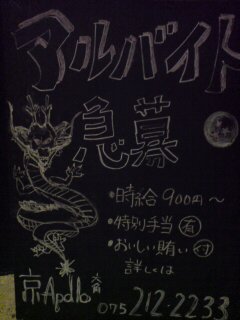 アルバイト
急募
・時給900円～
・特別手当 有
・おいしい賄い 付
詳しくは
京Apollo
075 212-2233